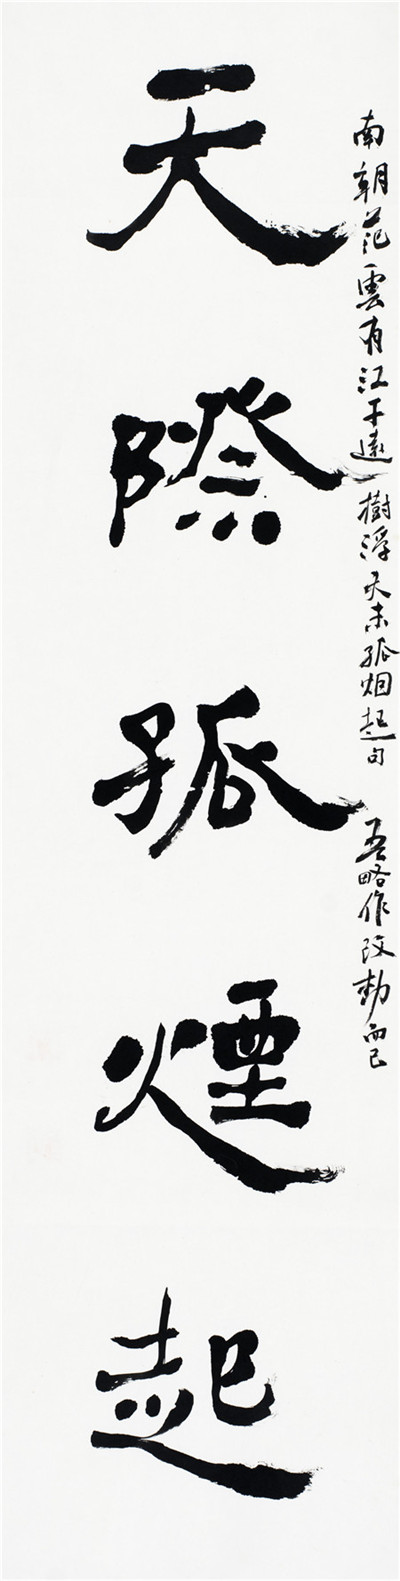 南朝范雲有江干遠樹浮天末孤烟起句 吾略作改動而已
天際孤煙起